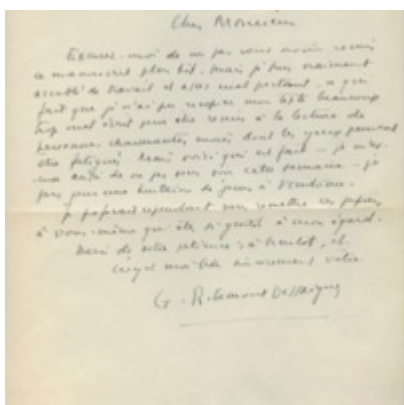 Cher Monsieur
Excusez-moi de ne pas vous avoir remis
ce manuscrit plus tôt. Mais j'étais vraiment
accablé de travail et assez mal portant, ce qui
fait que je n'ai pu recopier mon texte beaucoup
trop mal écrit pour être remis à la lecture de
personnes charmantes mais dont les yeux peuvent
être fatigués. Mais voici qui est fait — je
de ne pas vous voir cette semaine — je
pars pour une huitaine de jours à Vendôme.
Je préférais cependant vous remettre ces papiers
à vous-même qui êtes si gentil à mon égard.
Merci de votre patience, à bientôt, et
croyez moi bien sincèrement votre
G. Ribemont Dessaignes